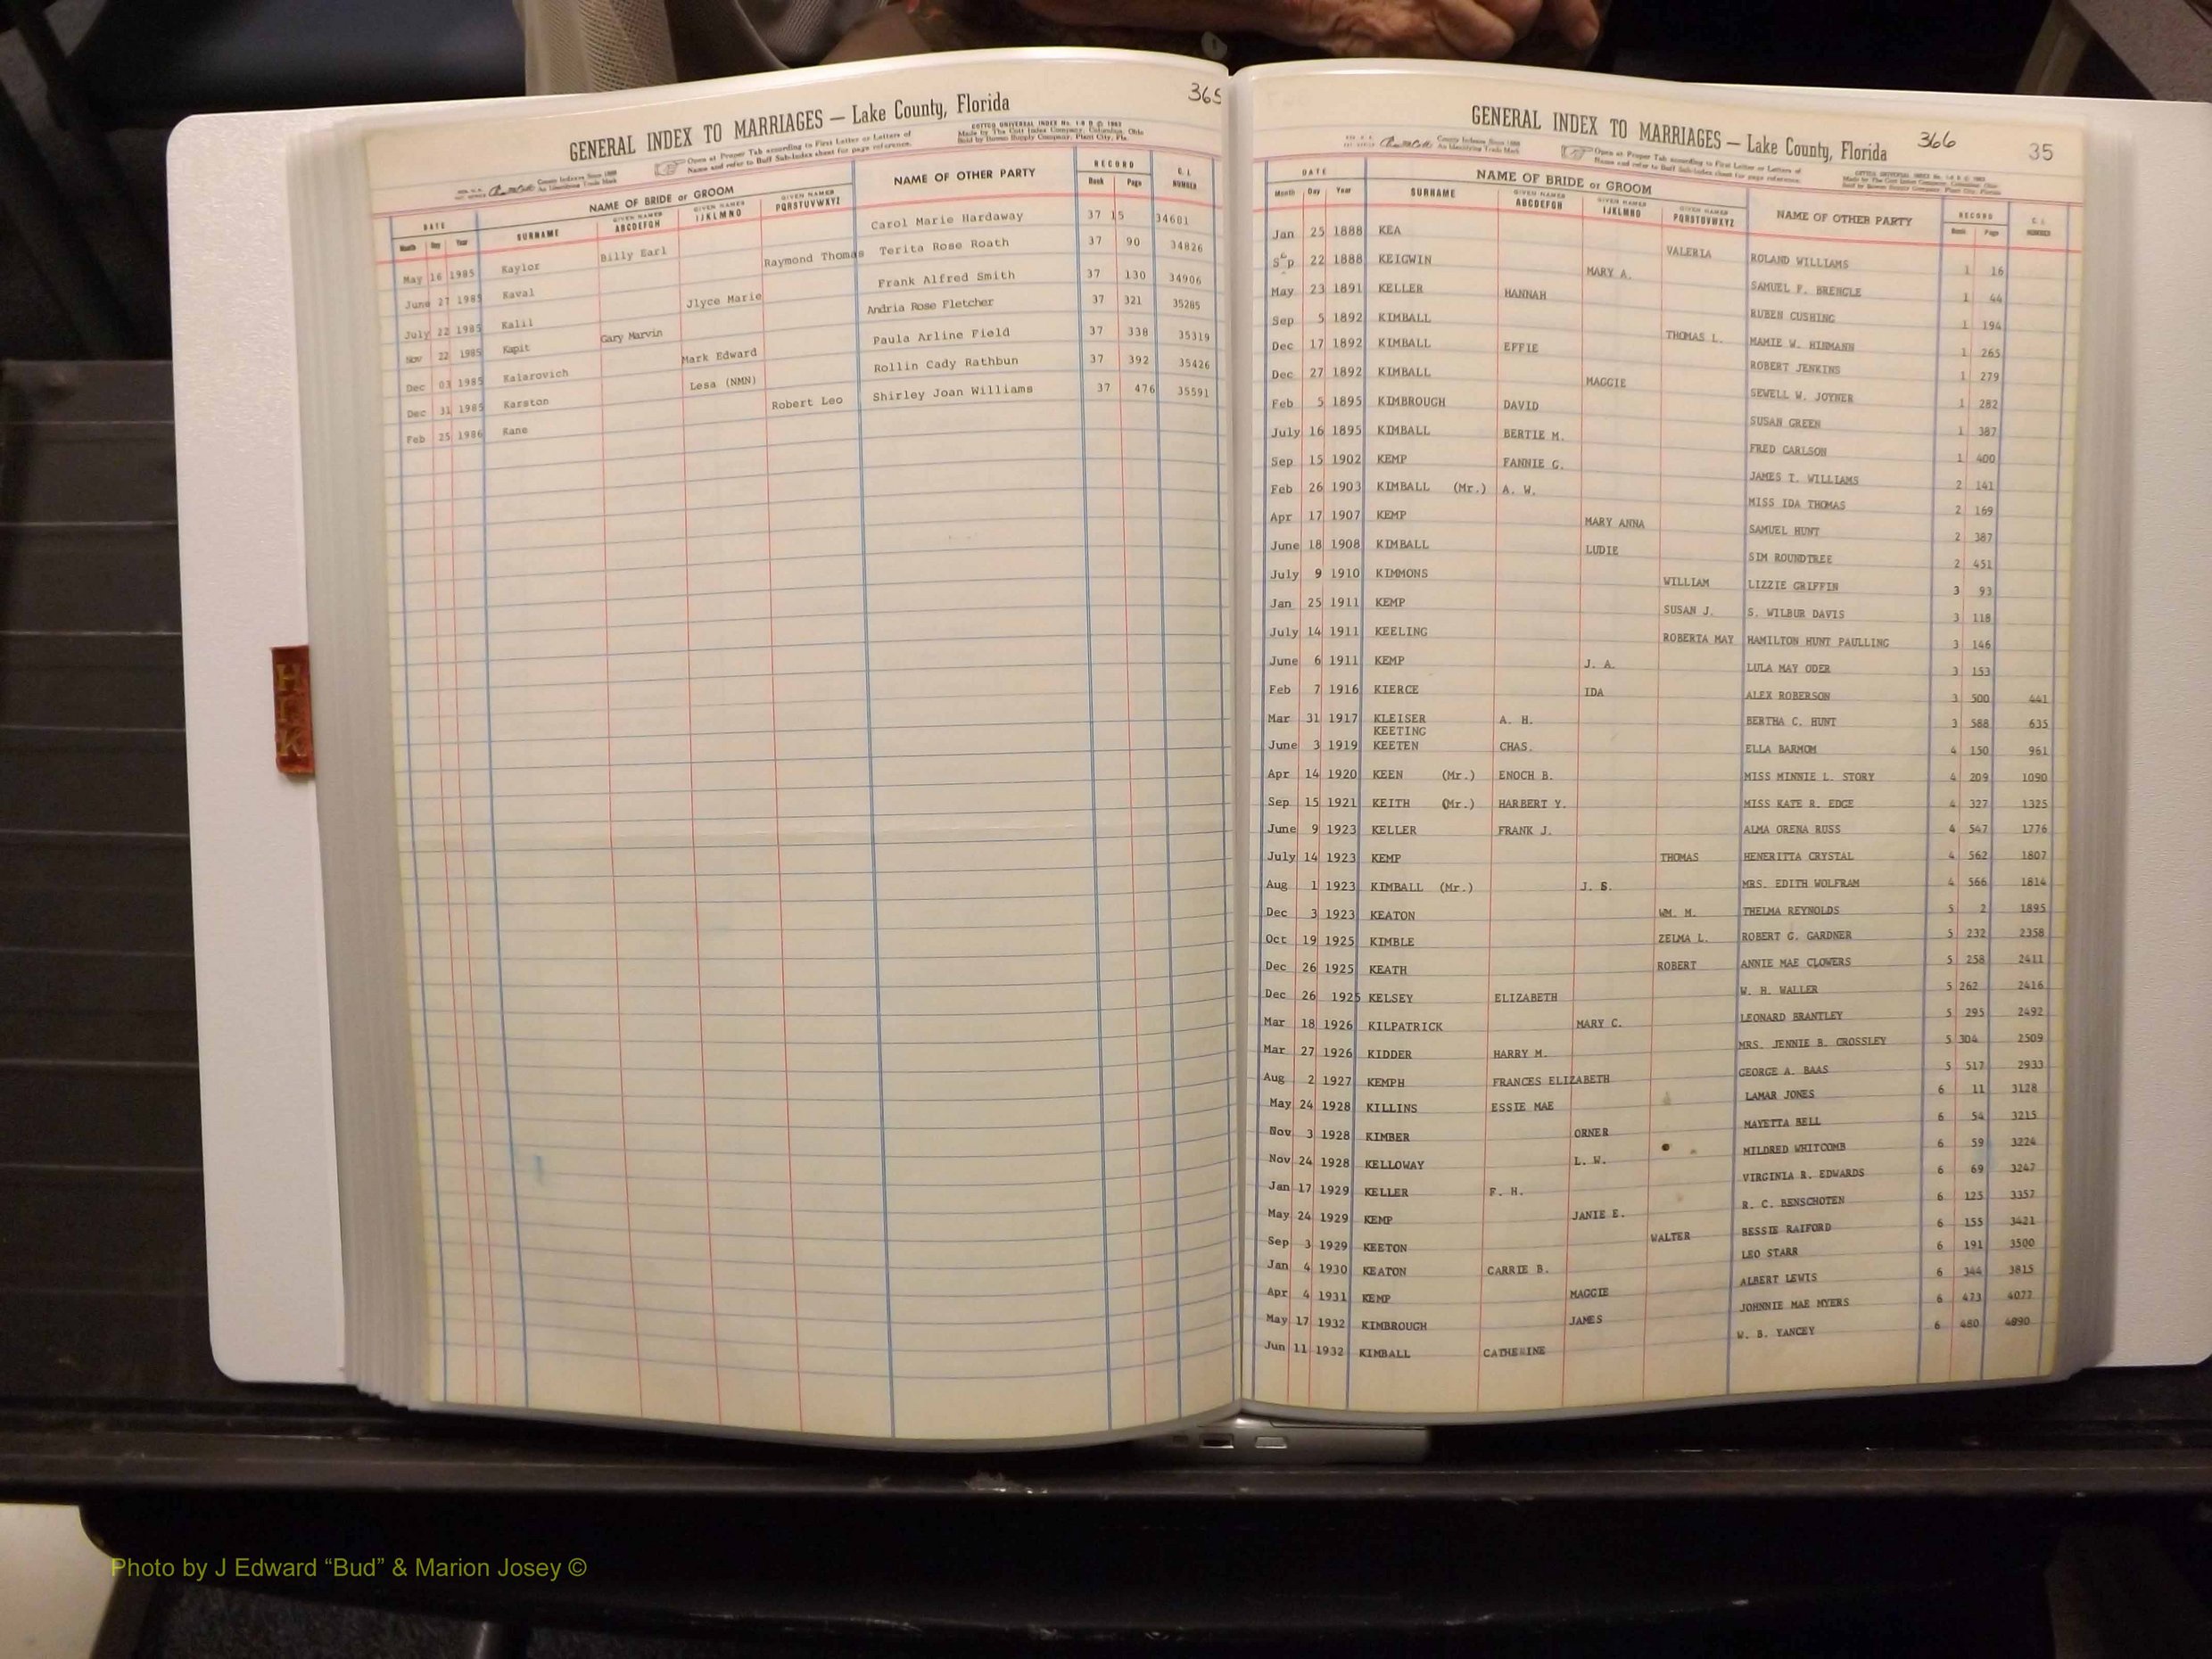 365
GENERAL INDEX TO MARRIAGES — Lake County, Florida
COTTCO UNIVERSAL INDEX No. 1-8
Made by The Cott Index Company, Columbus, Ohio
County Indexes Since 1888
An Identifying Trade Mark
Open at Proper Tab according to First Letter or Letters of
Name and refer to Buff Sub-Index sheet for page reference.
DATE NAME OF BRIDE or GROOM NAME OF OTHER PARTY RECORD
Month Day Year SURNAME GIVEN NAMES ABCDEFGH GIVEN NAMES IJKLMNO GIVEN NAMES PQRSTUVWXYZ Book Page NUMBER
May 16 1985 Kaylor Billy Earl Carol Marie Hardaway 37 15 34601
June 27 1985 Kaval Raymond Thomas Terita Rose Roath 37 90 34826
July 22 1985 Kalil Jlyce Marie Frank Alfred Smith 37 130 34906
Nov 22 1985 Kapit Gary Marvin Andria Rose Fletcher 37 321 35285
Dec 03 1985 Kalarovich Mark Edward Paula Arline Field 37 338 35319
Dec 31 1985 Karston Lesa (NMN) Rollin Cady Rathbun 37 392 35426
Feb 25 1986 Kane Robert Leo Shirley Joan Williams 37 476 35591
H I K
GENERAL INDEX TO MARRIAGES — Lake County, Florida 366 35
County Indexes Since 1888
An Identifying Trade Mark
Open at Proper Tab according to First Letter or Letters of
Name and refer to Buff Sub-Index sheet for page reference.
DATE NAME OF BRIDE or GROOM NAME OF OTHER PARTY RECORD
Month Day Year SURNAME GIVEN NAMES ABCDEFGH GIVEN NAMES IJKLMNO GIVEN NAMES PQRSTUVWXYZ Book Page NUMBER
Jan 25 1888 KEA VALERIA ROLAND WILLIAMS 1 16
Sep 22 1888 KEIGWIN MARY A. SAMUEL F. BRENGLE 1 44
May 23 1891 KELLER HANNAH RUBEN CUSHING 1 194
Sep 5 1892 KIMBALL THOMAS L. MAMIE W. HINMANN 1 265
Dec 17 1892 KIMBALL EFFIE ROBERT JENKINS 1 279
Dec 27 1892 KIMBALL MAGGIE SEWELL W. JOYNER 1 282
Feb 5 1895 KIMBROUGH DAVID SUSAN GREEN 1 387
July 16 1895 KIMBALL BERTIE M. FRED CARLSON 1 400
Sep 15 1902 KEMP FANNIE G. JAMES T. WILLIAMS 2 141
Feb 26 1903 KIMBALL (Mr.) A. W. MISS IDA THOMAS 2 169
Apr 17 1907 KEMP MARY ANNA SAMUEL HUNT 2 387
June 18 1908 KIMBALL LUDIE SIM ROUNDTREE 2 451
July 9 1910 KIMMONS WILLIAM LIZZIE GRIFFIN 3 93
Jan 25 1911 KEMP SUSAN J. S. WILBUR DAVIS 3 118
July 14 1911 KEELING ROBERTA MAY HAMILTON HUNT PAULLING 3 146
June 6 1911 KEMP J. A. LULA MAY ODER 3 153
Feb 7 1916 KIERCE IDA ALEX ROBERSON 3 500 441
Mar 31 1917 KLEISER A. H. BERTHA C. HUNT 3 588 635
KEETING
June 3 1919 KEETEN CHAS. ELLA BARMOM 4 150 961
Apr 14 1920 KEEN (Mr.) ENOCH B. MISS MINNIE L. STORY 4 209 1090
Sep 15 1921 KEITH (Mr.) HARBERT Y. MISS KATE R. EDGE 4 327 1325
June 9 1923 KELLER FRANK J. ALMA ORENA RUSS 4 547 1776
July 14 1923 KEMP THOMAS HENERITTA CRYSTAL 4 562 1807
Aug 1 1923 KIMBALL (Mr.) J. S. MRS. EDITH WOLFRAM 4 566 1814
Dec 3 1923 KEATON WM. M. THELMA REYNOLDS 5 2 1895
Oct 19 1925 KIMBLE ZELMA L. ROBERT G. GARDNER 5 232 2358
Dec 26 1925 KEATH ROBERT ANNIE MAE CLOWERS 5 258 2411
Dec 26 1925 KELSEY ELIZABETH W. H. WALLER 5 262 2416
Mar 18 1926 KILPATRICK MARY C. LEONARD BRANTLEY 5 295 2492
Mar 27 1926 KIDDER HARRY M. MRS. JENNIE B. CROSSLEY 5 304 2509
Aug 2 1927 KEMPH FRANCES ELIZABETH GEORGE A. BAAS 5 517 2933
May 24 1928 KILLINS ESSIE MAE LAMAR JONES 6 11 3128
Nov 3 1928 KIMBER ORNER MAYETTA BELL 6 54 3215
Nov 24 1928 KELLOWAY L. W. MILDRED WHITCOMB 6 59 3224
Jan 17 1929 KELLER F. H. VIRGINIA R. EDWARDS 6 69 3247
May 24 1929 KEMP JANIE E. R. C. BENSCHOTEN 6 125 3357
Sep 3 1929 KEETON WALTER BESSIE RAIFORD 6 155 3421
Jan 4 1930 KEATON CARRIE B. LEO STARR 6 191 3500
Apr 4 1931 KEMP MAGGIE ALBERT LEWIS 6 344 3815
May 17 1932 KIMBROUGH JAMES JOHNNIE MAE MYERS 6 473 4077
Jun 11 1932 KIMBALL CATHERINE W. B. YANCEY 6 480 4090
Photo by J Edward “Bud” & Marion Josey ©